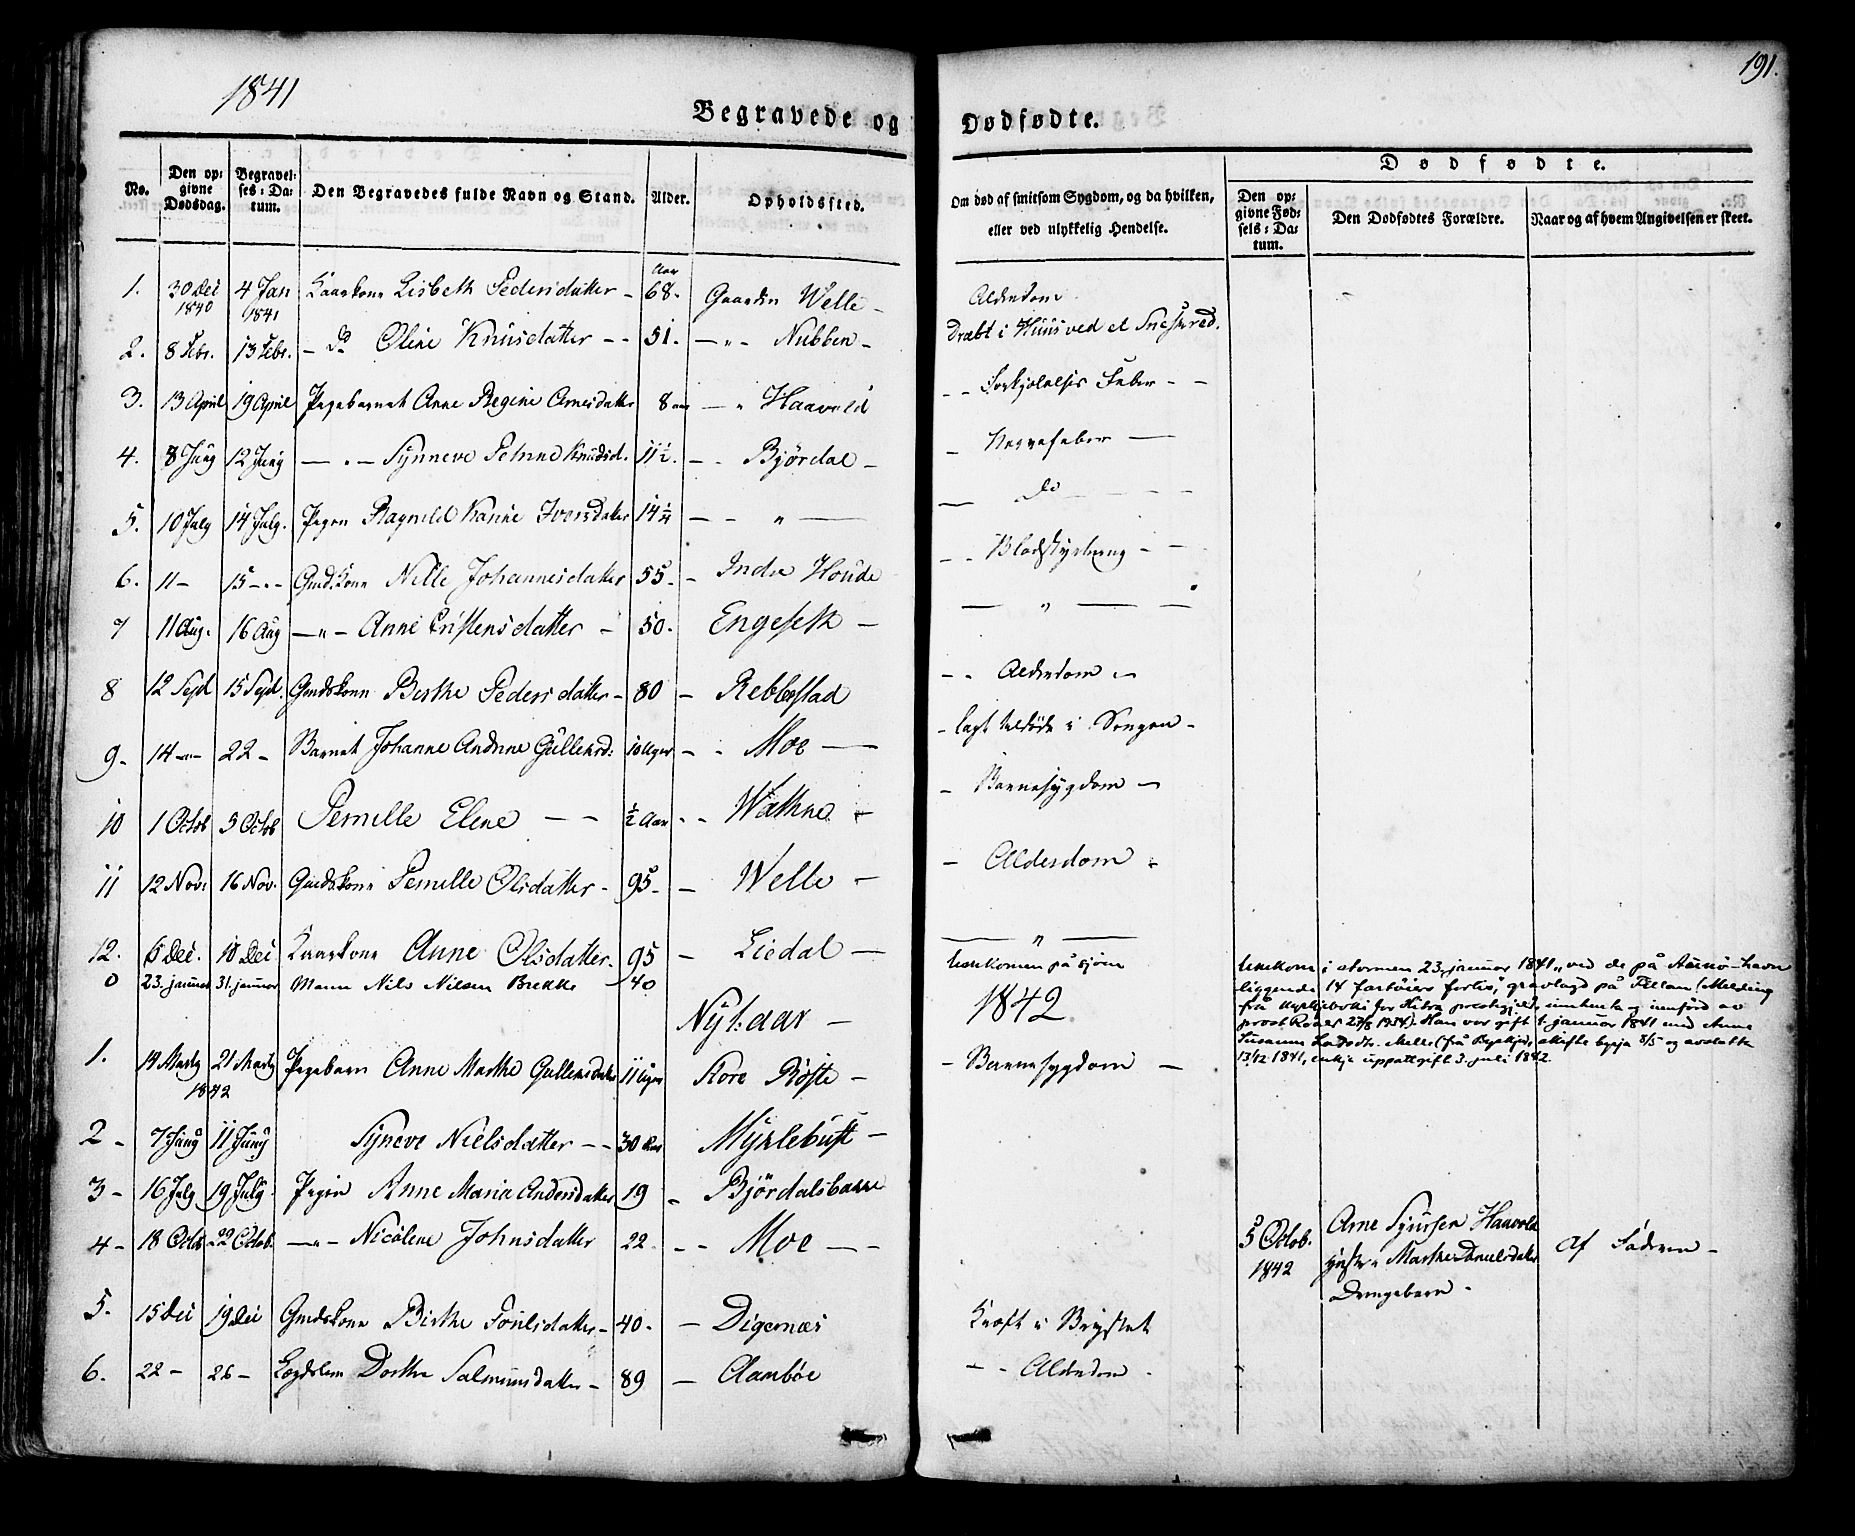 1841
191.
Begravede og Dødfødte.
No.
Den opgivne Dødsdag.
Begravelses-Datum.
Den Begravedes fulde Navn og Stand.
Alder.
Opholdssted.
Om død af smitsom Sygdom, og da hvilken, eller ved ulykkelig Hendelse.
Dødfødte.
Den opgivne Fødsels-Datum.
Den Dødfødtes Forældre.
Naar og af hvem Angivelsen er skeet.
1. 30 Dec 1840 4 Jan 1841 Kaarkone Lisbeth Pedersdatter - 68 Aar Gaarden Welle - Alderdom
2. 8 Febr. 13 Febr. - Do Oline Knudsdatter - - 51. - „ - Nubben - Dræbt i Huus ved et Sneskred.
3. 13 April 19 April Pigebarnet Anne Regine Arnesdatter 8 aar - „ Haavold - - Forkjølelses Feber - -
4. 8 Juny 12 Juny - „ - Synneve Petrine Knudsd. 11½. - - Bjørdal - - Nervefeber -
5. 10 July 14 July. Pigen Ragnild Karine Iversdatter 14 - - „ - - Do - - -
6. 11 - 15 - Gmdkone Nille Johannesdatter 55 - Indre Houde - - Blodstyrtning - -
7 11 Aug. 16 Aug - „ - Anne Cristensdatter - 50. Engeseth - - „ - -
8 12 Sept 15 Sept. Gmdskone Berthe Pedersdatter - 80 - Rebbestad - - Alderdom -
9 - 14 - 22 - Barnet Johanne Andrine Gullaksd: 10 Uger - - Moe - - lagt ihjel i Sengen -
10 1 Octob 5 Octob Pernille Elene - - ½ Aar - - Wathne - - Barnesygdom -
11 12 Nov: 16 Nov. Gmdskone Pernille Olsdatter - 95 - - Welle - - Alderdom -
12. 6 Dec. 18 Dec Kaarkone Anne Olsdatter. 95 - Liedal - - „ -
0 23. januar 31. januar Mann Nils Nilsen Brekke 40 Omkomen på sjøen
Omkom i stormen 23. januar 1841 „ved de på havn
liggende 14 fartøiers forlis", gravlagd på Fillan (Melding
frå for Hitra prestegjeld, innhenta og innførd av
prost 27/8 1934). Han var gift januar 1841 med Anne
Susanna skifte 5/5 og avslutta
13/12 1841, enkja uppattgift 3. juli 1842.
Nyt:aar -
1842
1. 14 Marty 21 Marty 1842 Pigebarn Anne Marthe Gullaksdatter 11 Uger Store Røste - - Barnesygdom -
2 - 7 Juny 11 Juny Syneve Nielsdatter - - 30 Aar Myklebust -
3 - 16 July 19 July. Pigen Anne Maria Andersdatter 19 - Bjørdalsbakke
4 - 18 Octob 22 Octob. - „ - Nicoline Johnsdatter 22 - - Moe - -
5 Octob. 1842
Arne Sjursen Haavold
Hustru Marthe
Drengebarn -
Af Faderen -
5. 15 Dec 19 Dec Gmdskone Birthe Poulsdatter - 40 - - Digernæs Kræft i Brystet
6. 22 - 26 - Lægdslem Dorthe Salmunsdatter - 89 - Aambøe - - Alderdom -